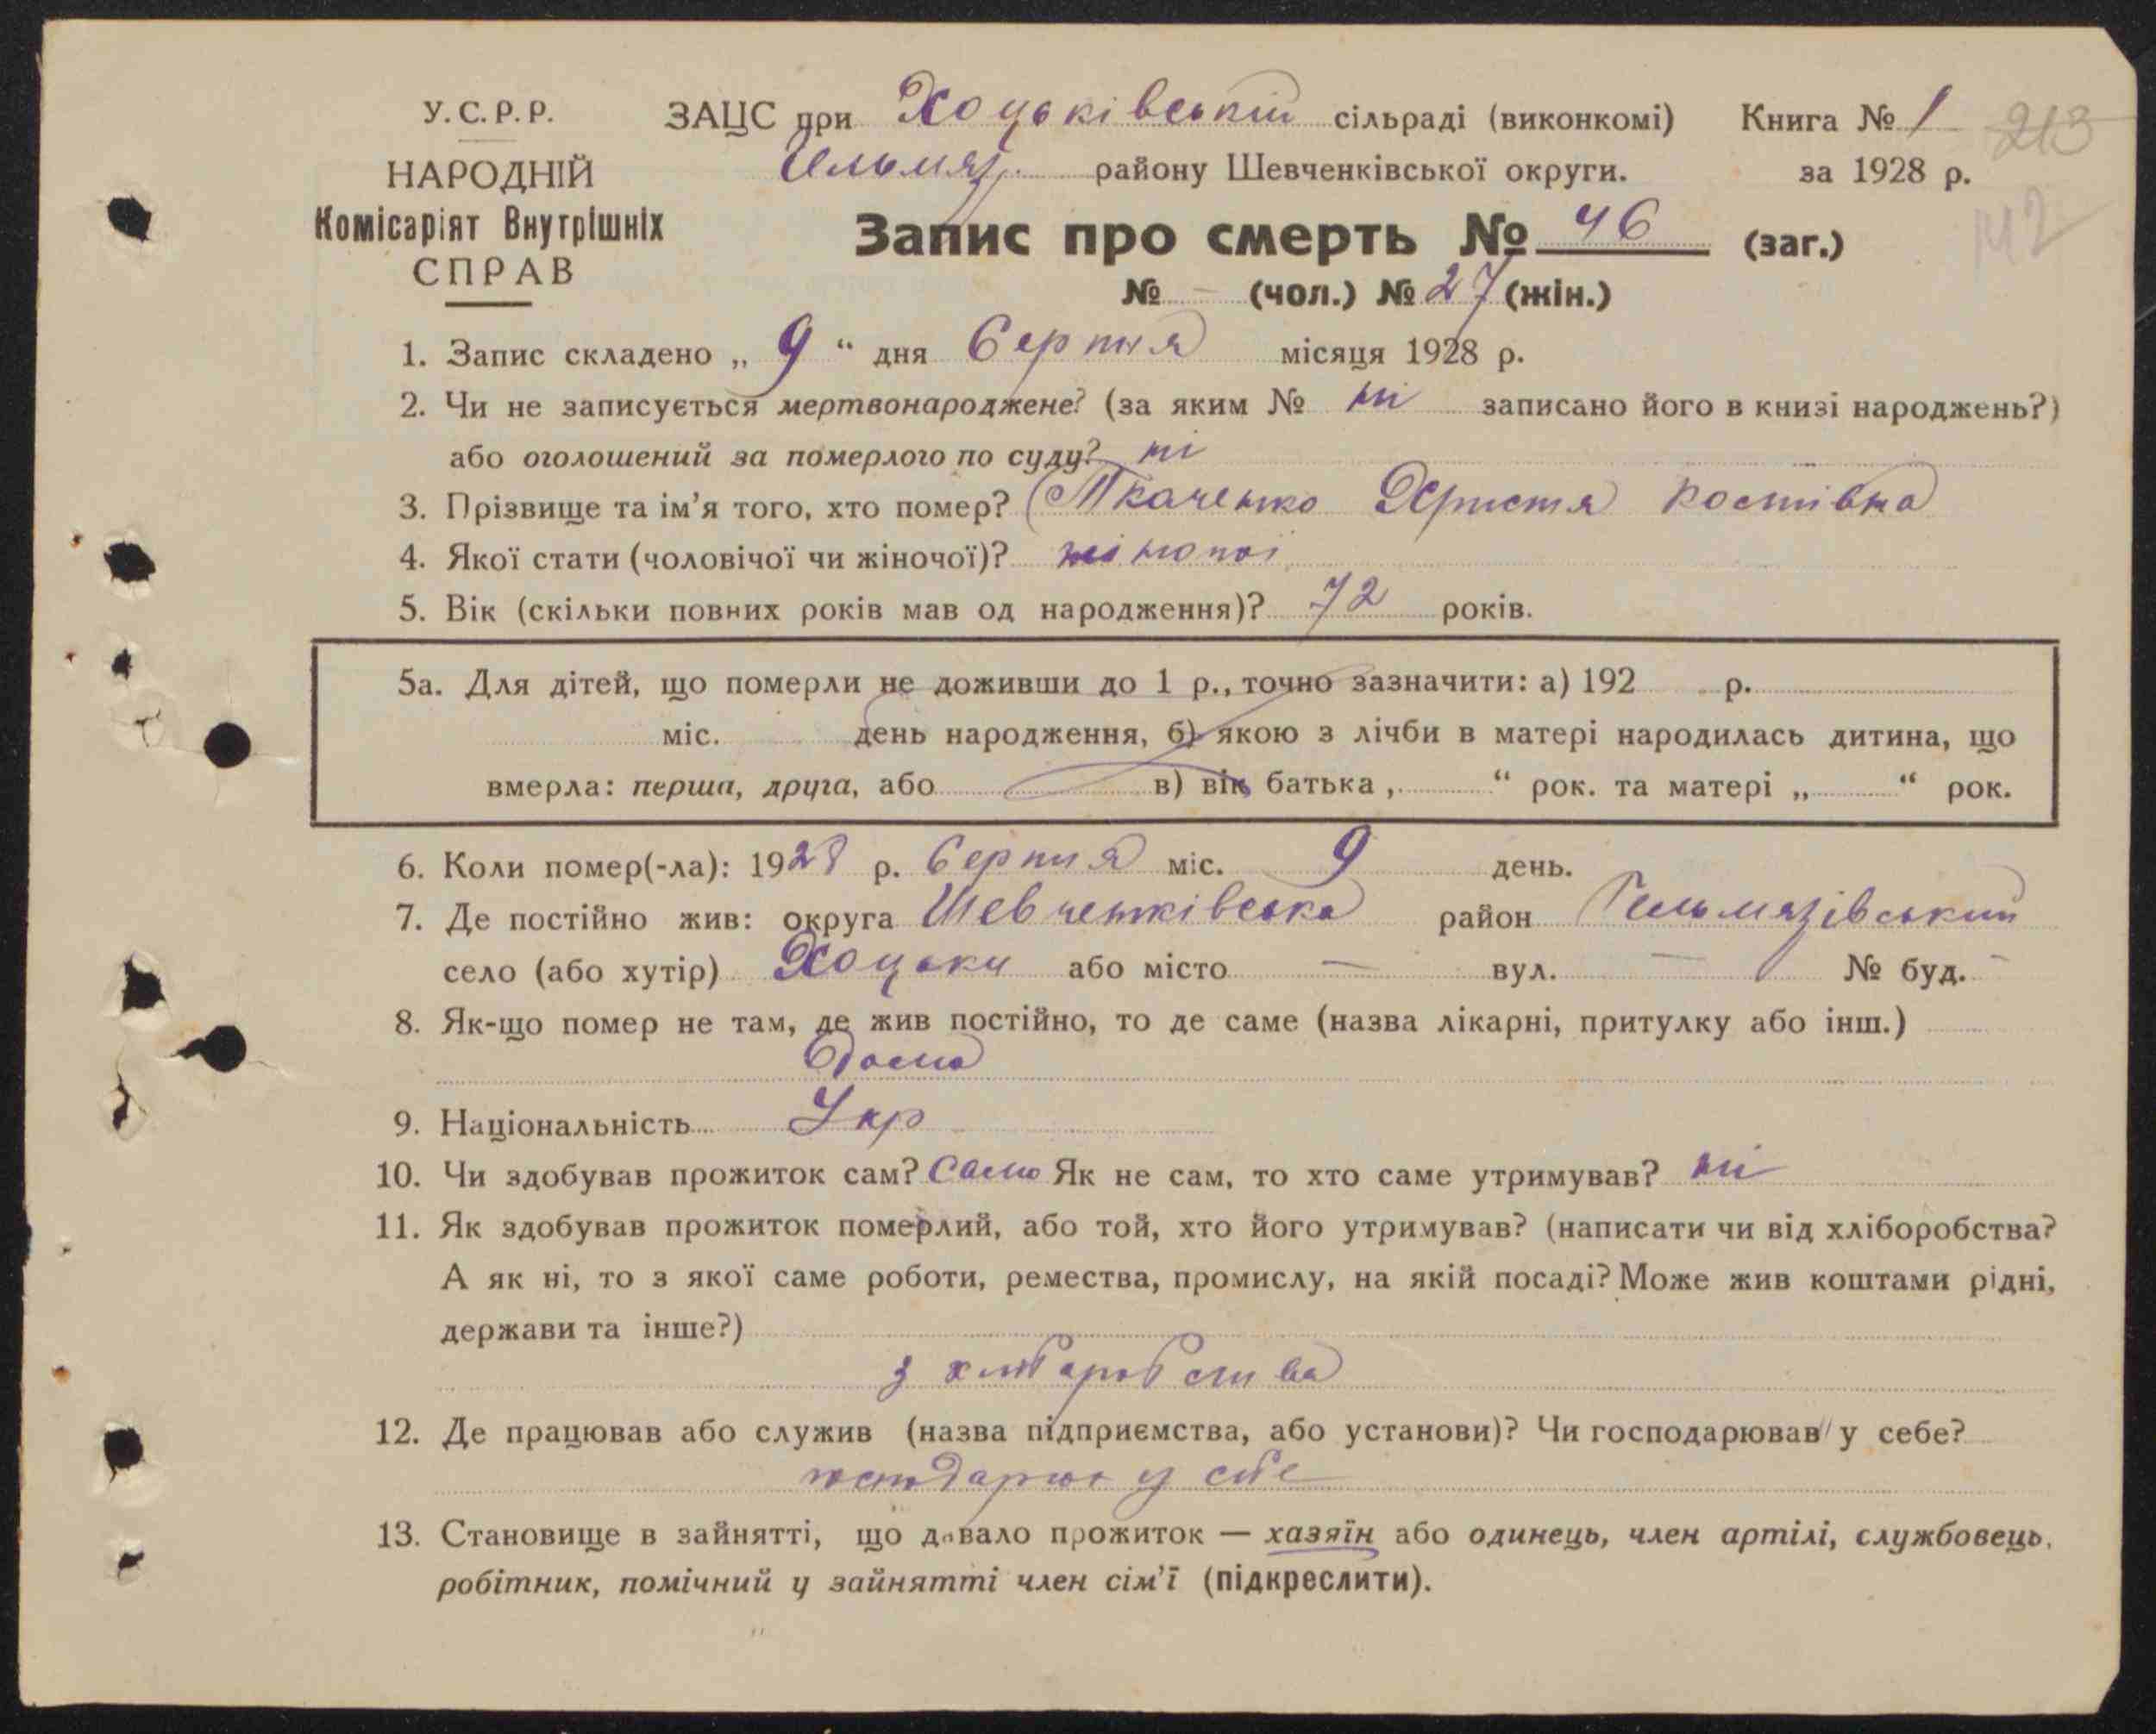 У.С.Р.Р. ЗАЦС при Хоцьківській сільраді (виконкомі) Книга № 1 213
НАРОДНІЙ Гельмяз. району Шевченківської округи. за 1928 р.
Комісаріят Внутрішніх Запис про смерть № 46 (заг.) 142
СПРАВ № – (чол.) № 27 (жін.)
1. Запис складено „ 9 “ дня Серпня місяця 1928 р.
2. Чи не записується мертвонароджене? (за яким № ні записано його в книзі народжень?)
або оголошений за померлого по суду? ні
3. Прізвище та ім’я того, хто помер? Ткаченко Христя Костівна
4. Якої стати (чоловічої чи жіночої)? жіночої
5. Вік (скільки повних років мав од народження)? 72 років.
5а. Для дітей, що померли не доживши до 1 р., точно зазначити: а) 192 р.
міс. день народження, б) якою з лічби в матері народилась дитина, що
вмерла: перша, друга, або в) вік батька „ “ рок. та матері „ “ рок.
6. Коли помер(-ла): 1928 р. Серпня міс. 9 день.
7. Де постійно жив: округа Шевченківська район Гельмязівський
село (або хутір) Хоцьки або місто — вул. — № буд. –
8. Як-що помер не там, де жив постійно, то де саме (назва лікарні, притулку або інш.)
Вдома
9. Національність Укр
10. Чи здобував прожиток сам? Сама Як не сам, то хто саме утримував? ні
11. Як здобував прожиток померлий, або той, хто його утримував? (написати чи від хліборобства?
А як ні, то з якої саме роботи, ремества, промислу, на якій посаді? Може жив коштами рідні,
держави та інше?)
з хліборобства
12. Де працював або служив (назва підприємства, або установи)? Чи господарював у себе?
у себе
13. Становище в зайнятті, що давало прожиток — хазяїн або одинець, член артілі, службовець,
робітник, помічний у зайнятті член сім’ї (підкреслити).